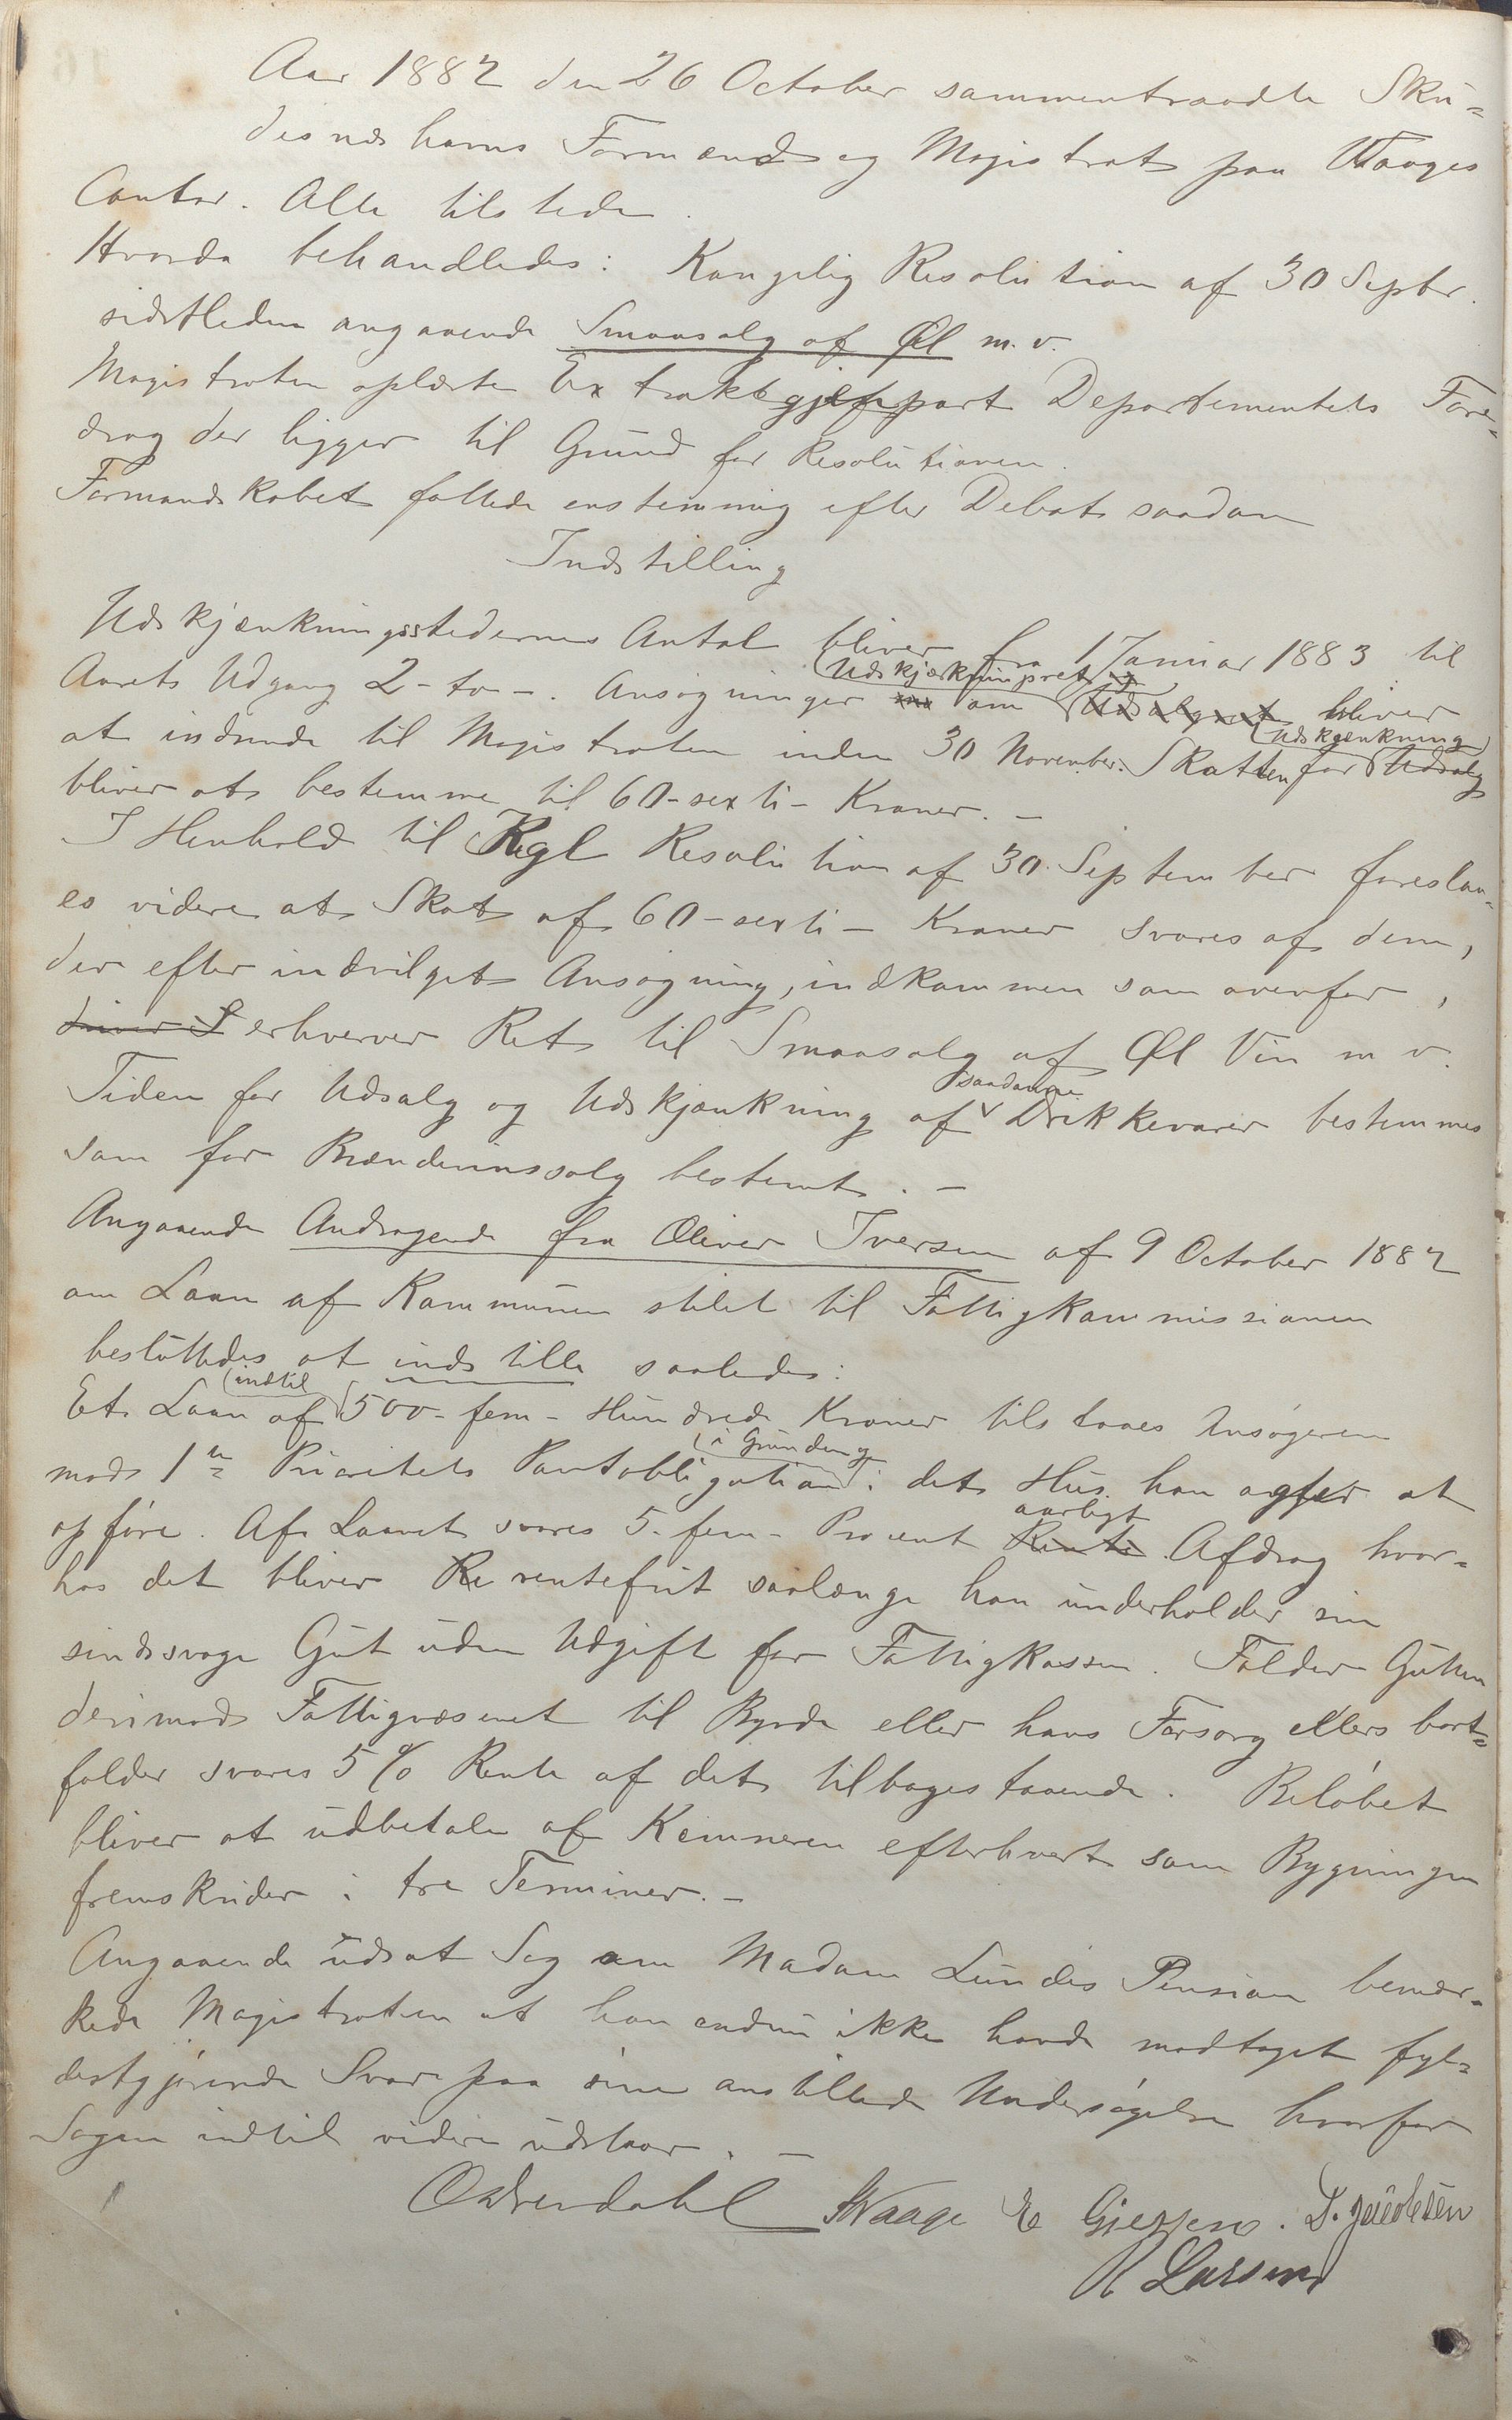 Aar 1882 den 26 October sammentraadte Sku=
desnæshavns Formænd og Magistrat paa Waages
Contor. Alle tilstede.
Hvorda behandledes: Kongelig Resolution af 30 Septbr.
sidstleden angaaende Smaasalg af Øl m.v.
Magistraten oplæste Extraktgjenpart Departementets Fore=
drag der ligger til Grund for Resolutionen.
Formandskabet fattede enstemmig efter Debat saadan
Indstilling
Udskjænkningsstedernes Antal bliver fra 1 Januar 1883 til
Udskjænkningsret
Aarets Udgang 2-to-. Ansøgninger om Udsalgsret bliver
Udskjænkning
at indsende til Magistraten inden 30 November. Skatten for Udsalg
bliver at bestemme til 60-sexti- Kroner. -
I Henhold til Kgl Resolution af 30 September foreslaa-
es videre at Skat af 60-sexti- Kroner svares af dem,
der efter indvilget Ansøgning, indkommen som ovenfor,
driver S erhverver Ret til Smaasalg af Øl Vin m v.
saadanne
Tiden for Udsalg og Udskjænkning af Drikkevarer bestemmes
som for Brændevinssalg bestemt. -
Angaaende Andragende fra Oliver Iversen af 9 October 1882
om Laan af Kommunen stilet til Fattigkommissionen
besluttedes at indstille saaledes:
indtil
Et Laan af 500-fem-Hundrede Kroner tilstaaes Ansøgeren
i Grunden og
mod 1ste Prioritets Pantobligation i det Hus han agter at
aarligt
opføre. Af Laanet svares 5-fem-Procent Rente Afdrag hvor=
hos det bliver Re rentefrit saalænge han underholder sin
sindssvage Gut uden Udgift for Fattigkassen. Falder Gutten
derimod Fattigvæsenet til Byrde eller hans Forsorg ellers bort=
falder svares 5 % Rente af det tilbagestaaende. Beløbet
bliver at udbetale af Kemneren efterhvert som Bygningen
fremskrider i tre Terminer. -
Angaaende udsat Sag om Madam Lundes Pension bemær-
kede Magistraten at han endnu ikke havde modtaget fyl=
destgjørende Svar paa sine anstillede Undersøgelser hvorfor
Sagen indtil videre udstaar. -
Østrendahl SWaage E Gjessen. D. Jacobsen
R Larsen